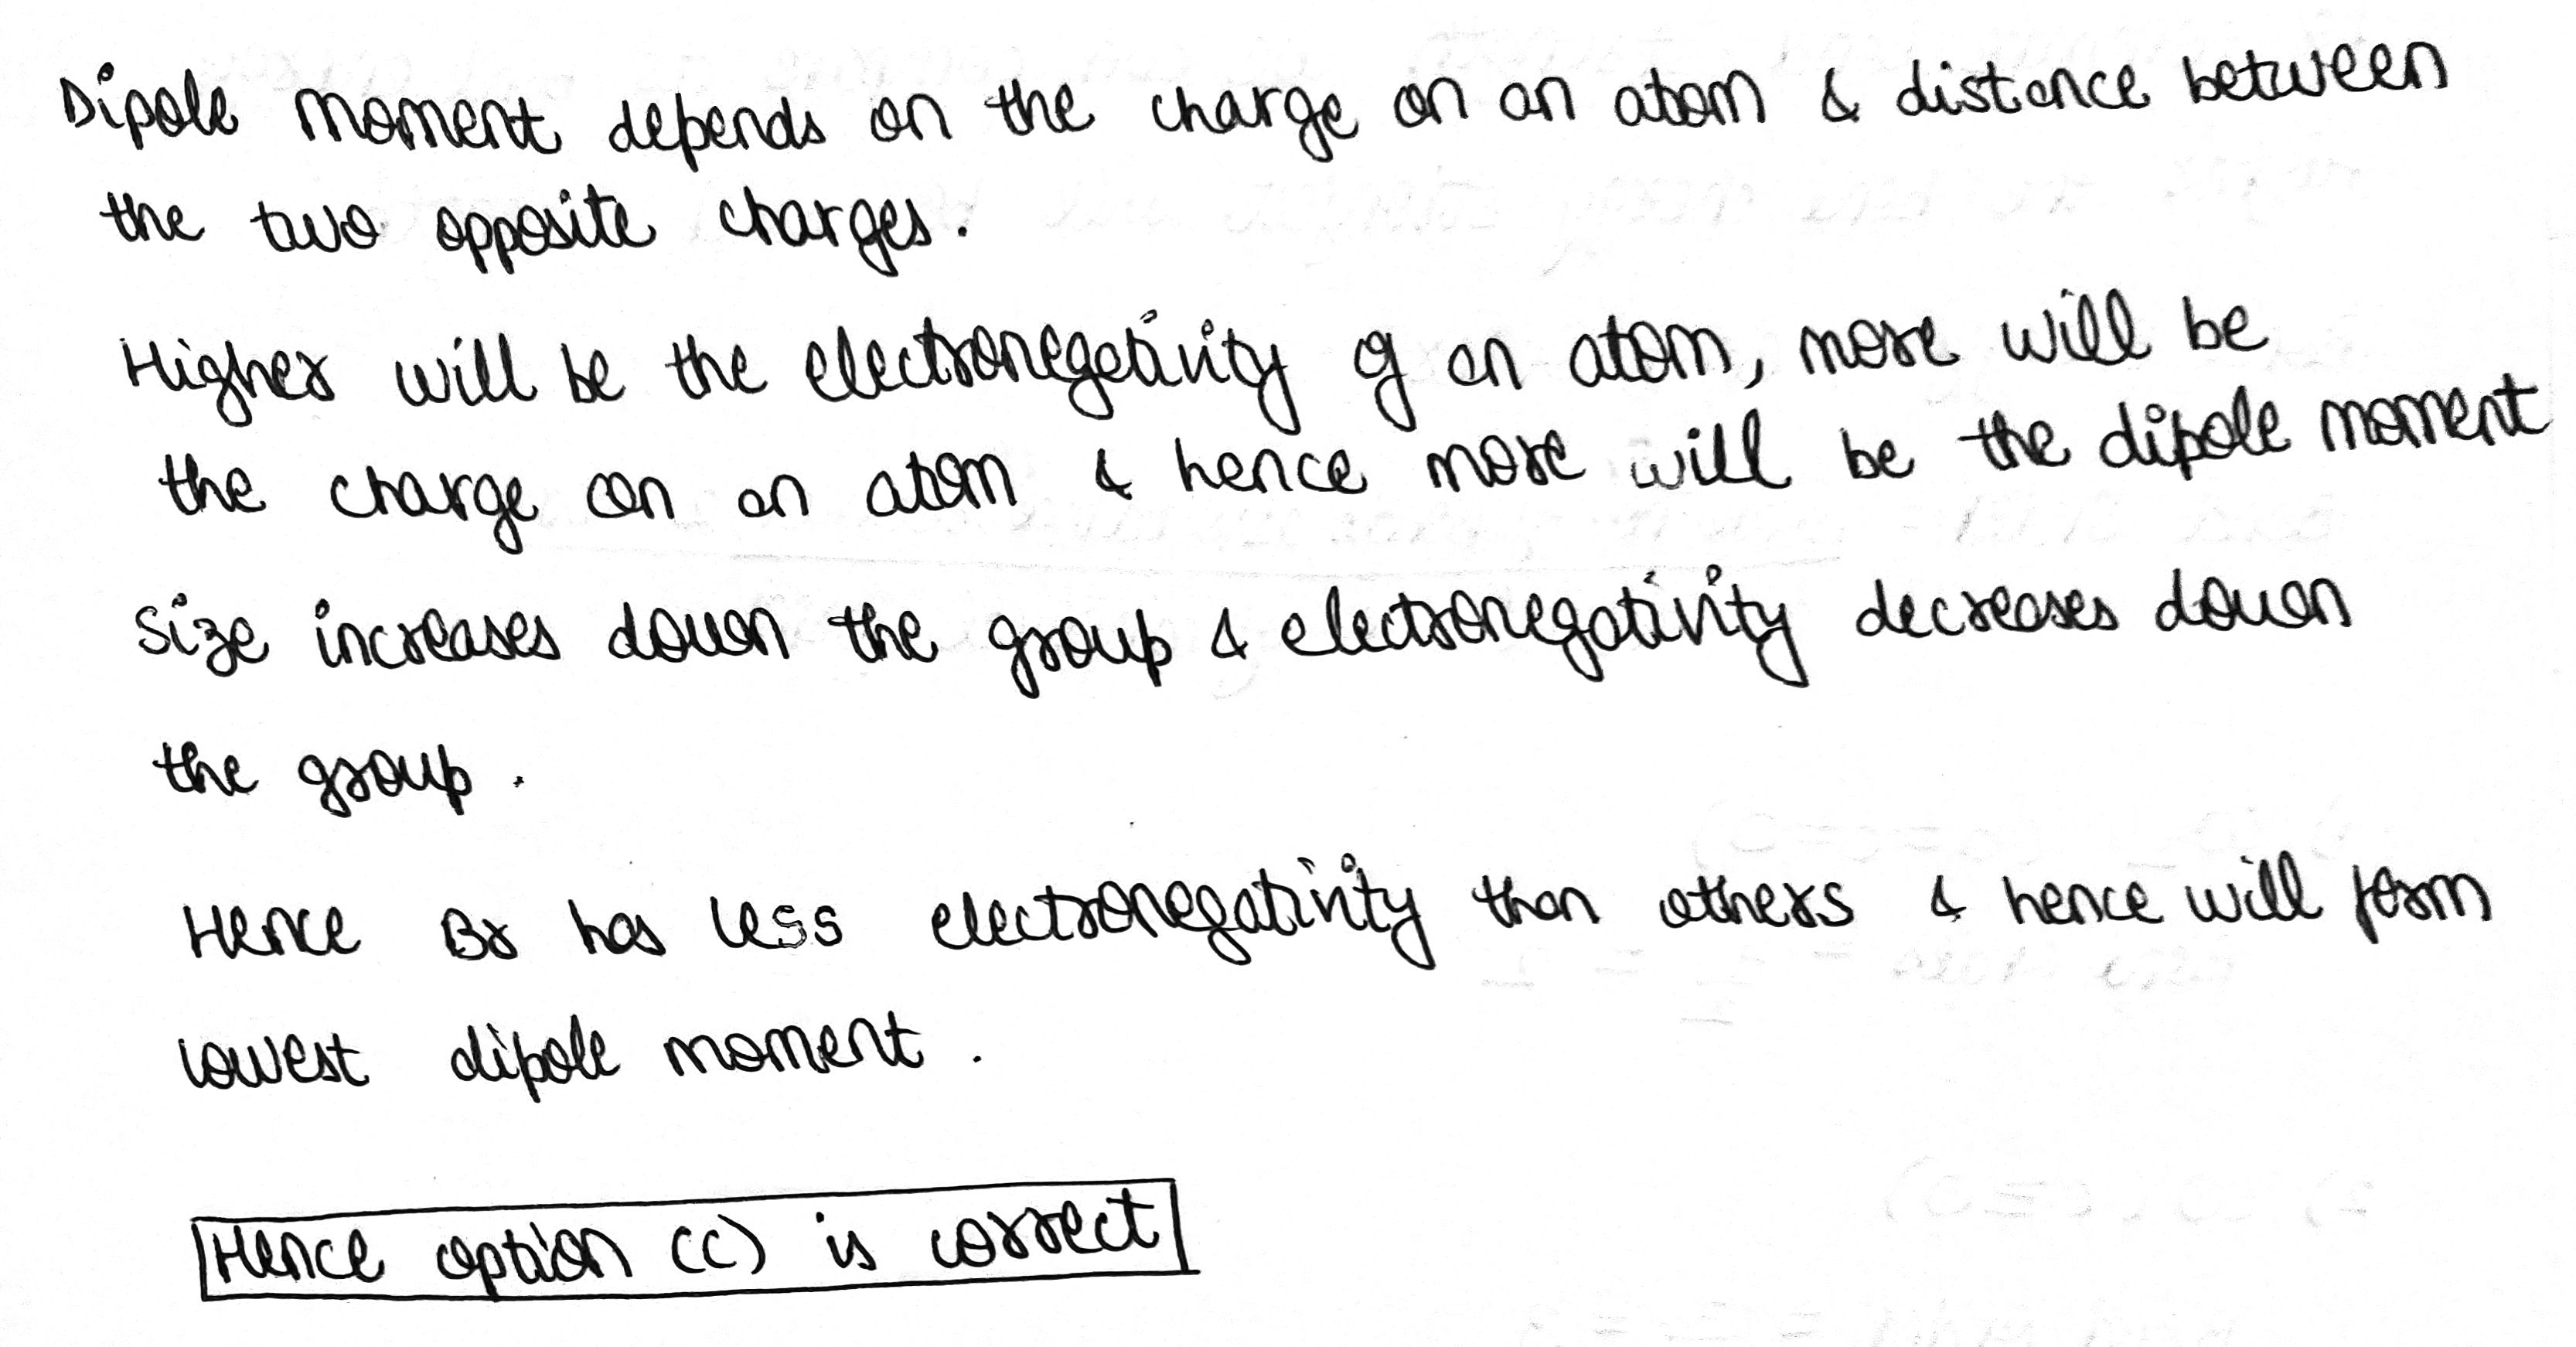 Dipole moment depends on the charge on an atom & distance between
the two opposite charges.
Higher will be the electronegativity of an atom, more will be
the charge on an atom & hence more will be the dipole moment
Size increases down the group & electronegativity decreases down
the group.
Hence Br has less electronegativity than others & hence will form
lowest dipole moment.
Hence option (c) is correct